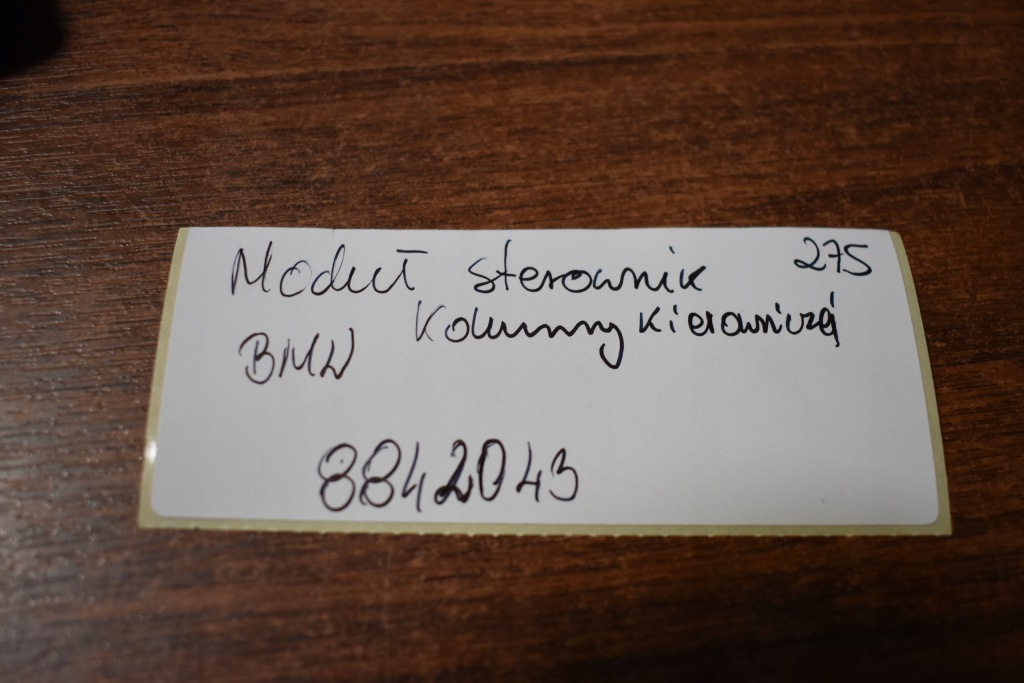 Moduł sterownik 275
Kolumny kierowniczej
BMW
8842043